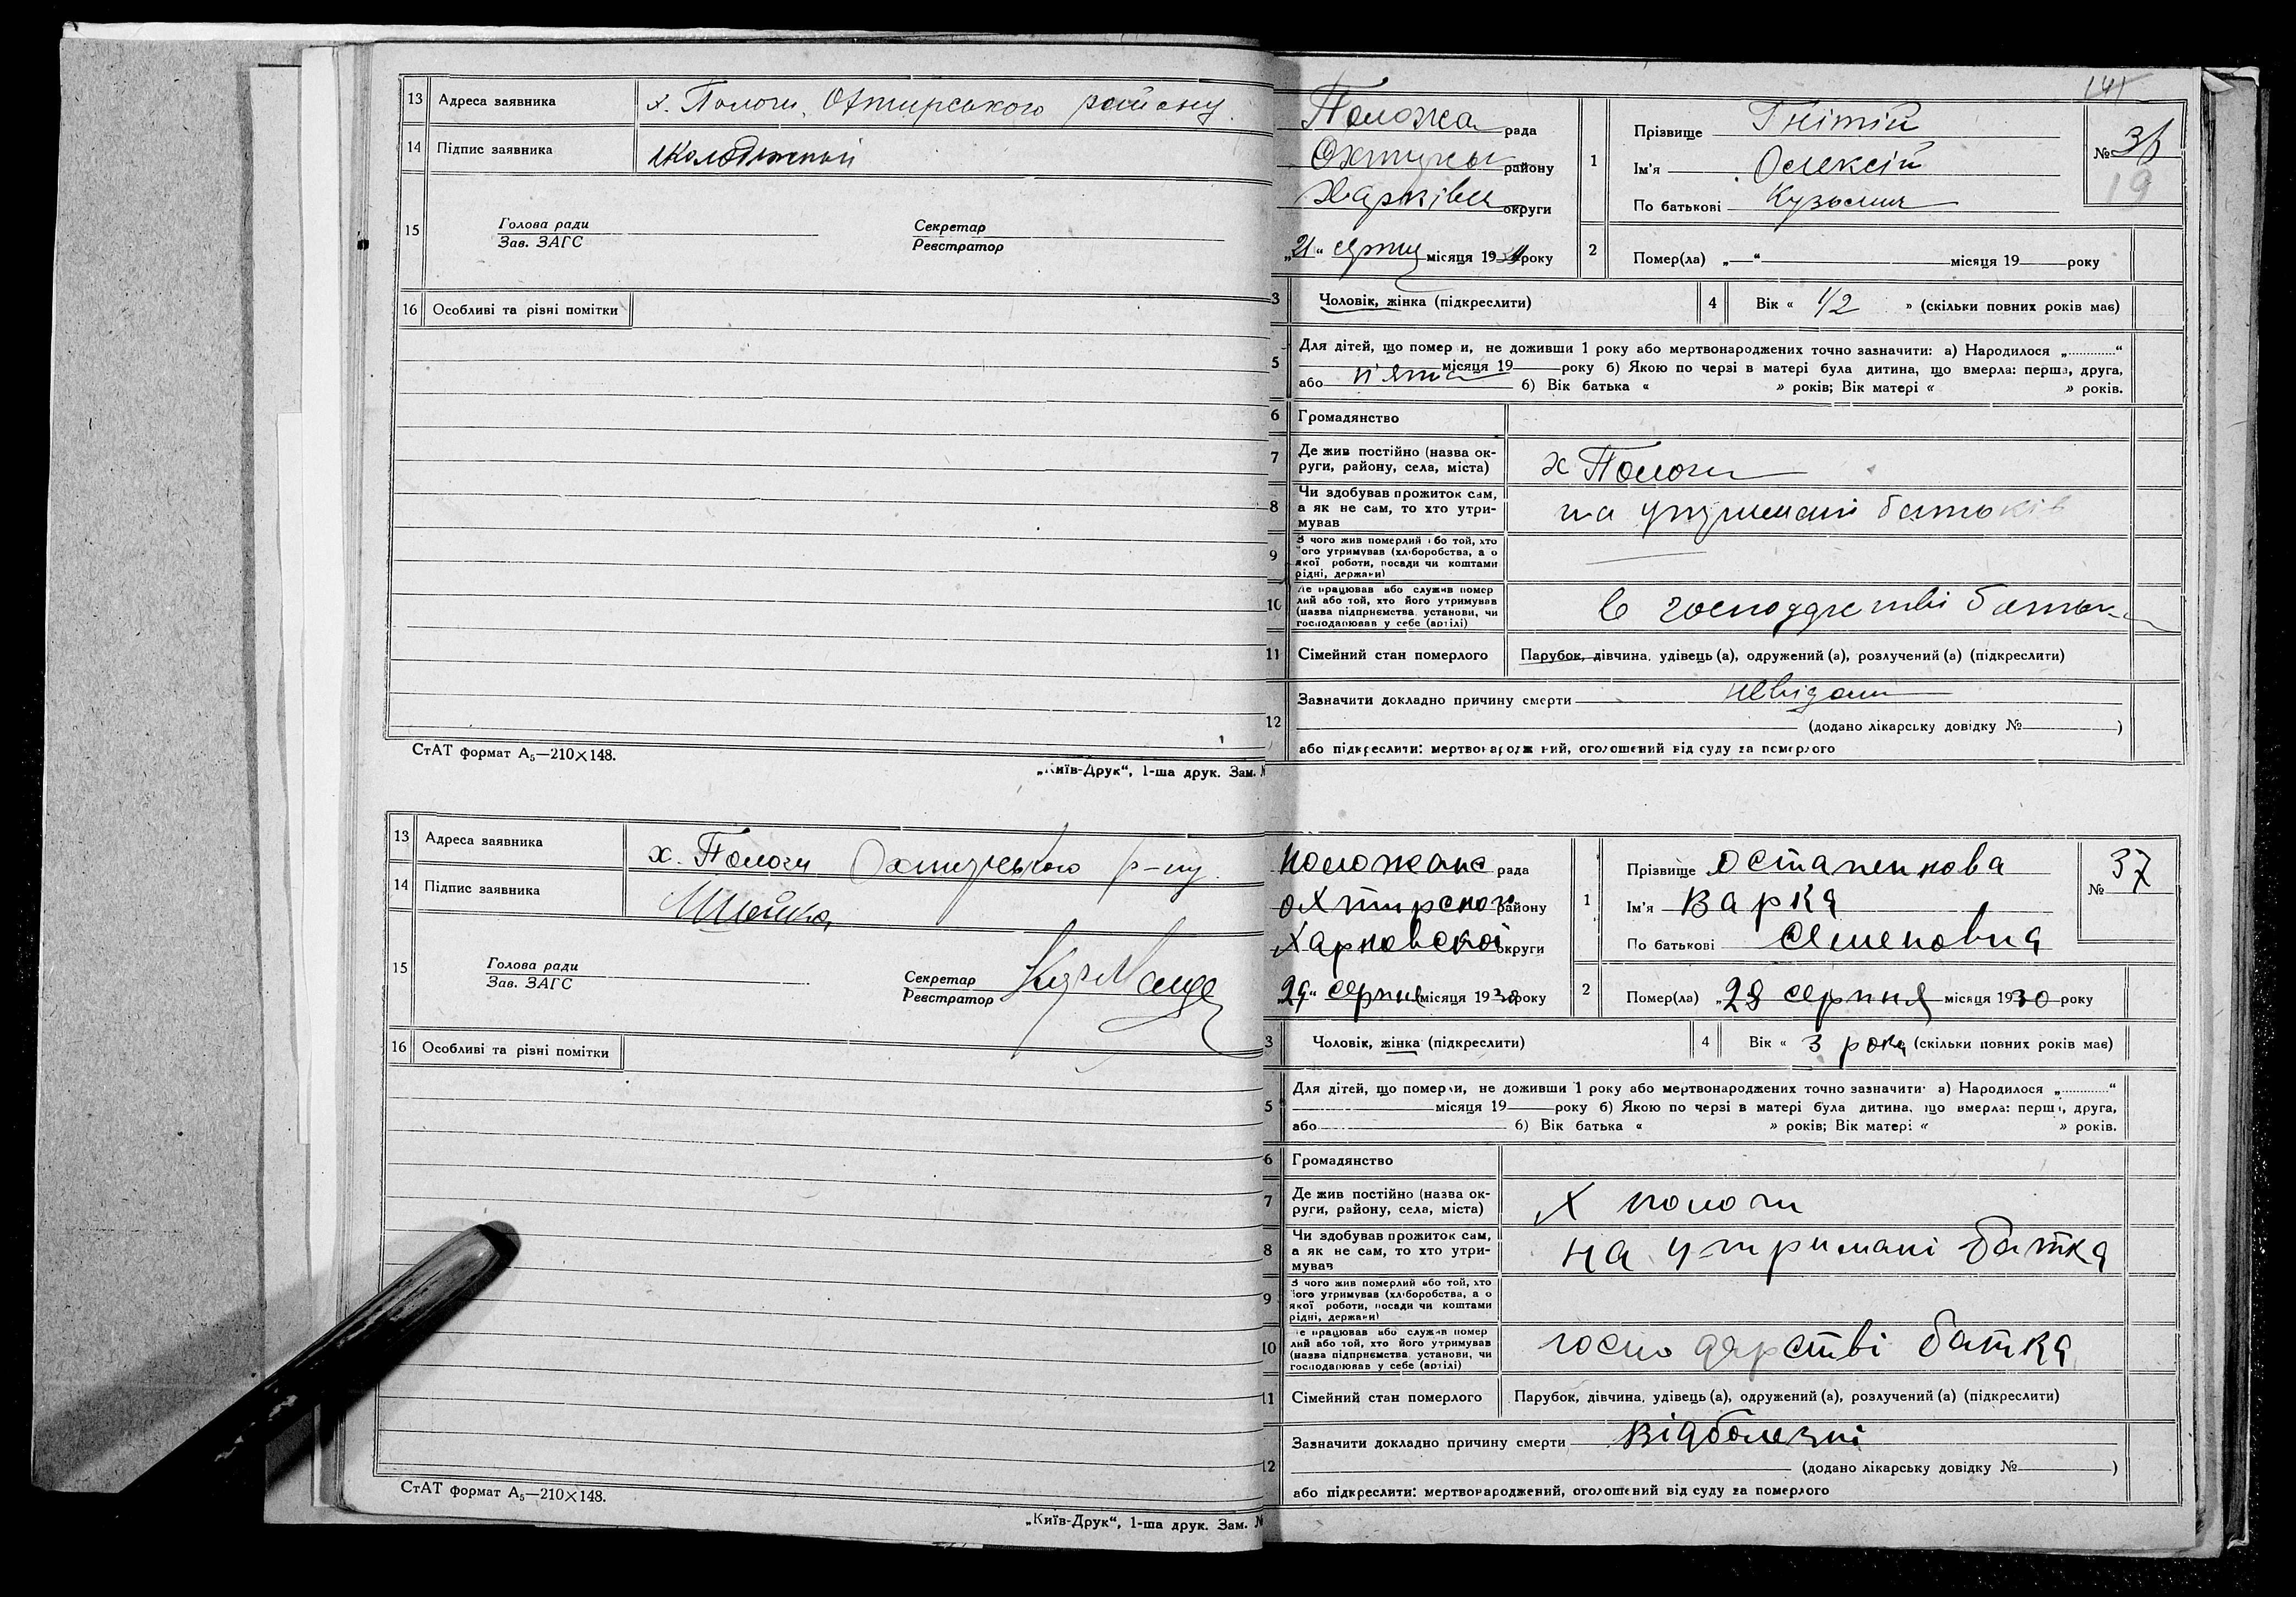 13 Адреса заявника х. Пологи, Охтирського району.
14 Підпис заявника
15 Голова ради Секретар
Зав. ЗАГС Реєстратор
16 Особливі та різні помітки
СтАТ формат А₅—210×148.
„Київ-Друк“, 1-ша друк. Зам. №
13 Адреса заявника х. Пологи Охтирського р-ну.
14 Підпис заявника
15 Голова ради Секретар
Зав. ЗАГС Реєстратор
16 Особливі та різні помітки
СтАТ формат А₅—210×148.
„Київ-Друк“, 1-ша друк. Зам. №
рада
району
округи
„21“ місяця 19 року
1 Прізвище Гнітій
Ім'я Олексій
По батькові
№ 36
19
2 Помер(ла) „—“ місяця 19 року
3 Чоловік, жінка (підкреслити)
4 Вік « 1/2 » (скільки повних років має)
5 Для дітей, що померли, не доживши 1 року або мертвонароджених точно зазначити: а) Народилося „ “
місяця 19 року б) Якою по черзі в матері була дитина, що вмерла: перша, друга,
або п'ята б) Вік батька « » років; Вік матері « » років.
6 Громадянство
7 Де жив постійно (назва ок-
руги, району, села, міста) х Пологи
8 Чи здобував прожиток сам,
а як не сам, то хто утри-
мував на утримані батьків
9 З чого жив померлий або той, хто
його утримував (хліборобства, а о
якої роботи, посади чи коштами
рідні, держави)
10 Де працював або служив помер
лий або той, хто його утримував
(назва підприємства, установи, чи
господарював у себе (артілі) в господарстві батька
11 Сімейний стан померлого Парубок, дівчина, удівець (а), одружений (а), розлучений (а) (підкреслити)
12 Зазначити докладно причину смерти невідомі
(додано лікарську довідку № )
або підкреслити: мертвонароджений, оголошений від суду за померлого
положанс рада
охтирской району
Харковской округи
„29“ серпня місяця 1930 року
1 Прізвище Остапенкова
Ім'я Варка
По батькові Семеновна
№ 37
2 Помер(ла) „28 серпня місяця 1930 року
3 Чоловік, жінка (підкреслити)
4 Вік « 3 рока (скільки повних років має)
5 Для дітей, що померли, не доживши 1 року або мертвонароджених точно зазначити: а) Народилося „ “
місяця 19 року б) Якою по черзі в матері була дитина, що вмерла: перша, друга,
або б) Вік батька « » років; Вік матері « » років.
6 Громадянство
7 Де жив постійно (назва ок-
руги, району, села, міста) х пологи
8 Чи здобував прожиток сам,
а як не сам, то хто утри-
мував на утримані батка
9 З чого жив померлий або той, хто
його утримував (хліборобства, а о
якої роботи, посади чи коштами
рідні, держави)
10 Де працював або служив помер
лий або той, хто його утримував
(назва підприємства, установи, чи
господарював у себе (артілі) господарстві батка
11 Сімейний стан померлого Парубок, дівчина, удівець (а), одружений (а), розлучений (а) (підкреслити)
12 Зазначити докладно причину смерти відболезні
(додано лікарську довідку № )
або підкреслити: мертвонароджений, оголошений від суду за померлого